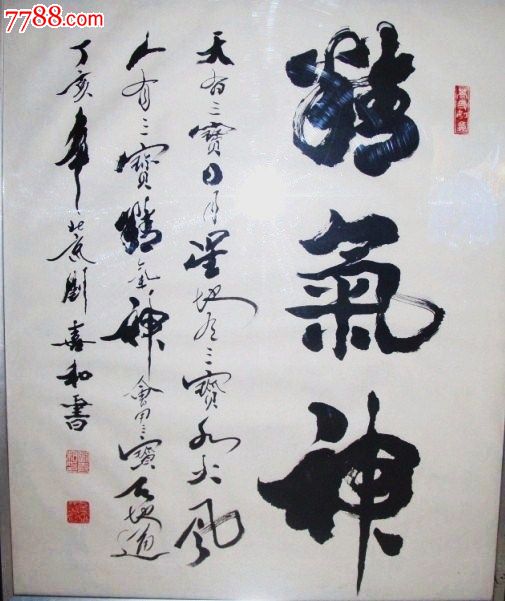 7788.com
精氣神
天有三寶日月星地有三寶水火風
人有三寶精氣神會用三寶天地通
丁亥年北京劉嘉和書